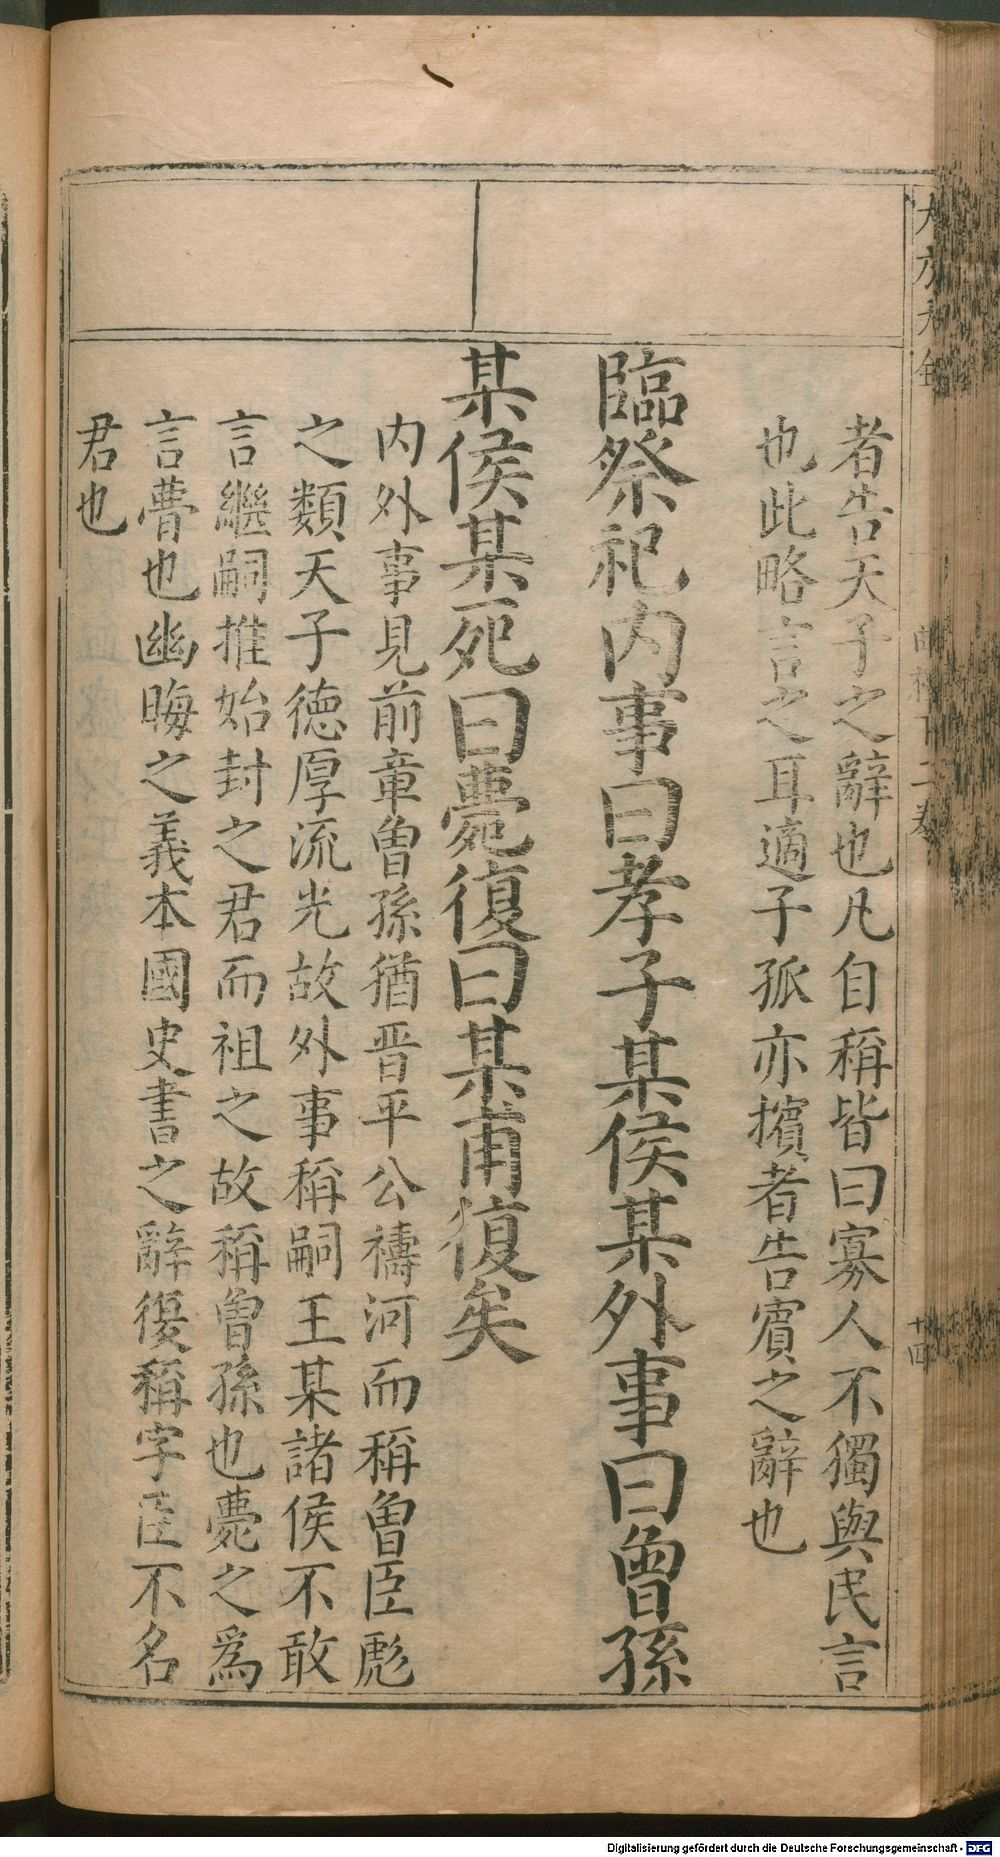 者告天子之辭也凡自稱皆曰寡人不獨與民言
也此略言之耳適子孤亦擯者告賓之辭也
臨祭祀内事曰孝子某侯某外事曰曾孫
某侯某死曰薨復曰某甫復矣
内外事見前章曾孫猶晋平公禱河而稱曾臣彪
之類天子德厚流光故外事稱嗣王某諸侯不敢
言繼嗣推始封之君而祖之故稱曾孫也薨之爲
言瞢也幽晦之義本國史書之辭復稱字臣不名
君也
二卷
十四
Digitalisierung gefördert durch die Deutsche Forschungsgemeinschaft - DFG